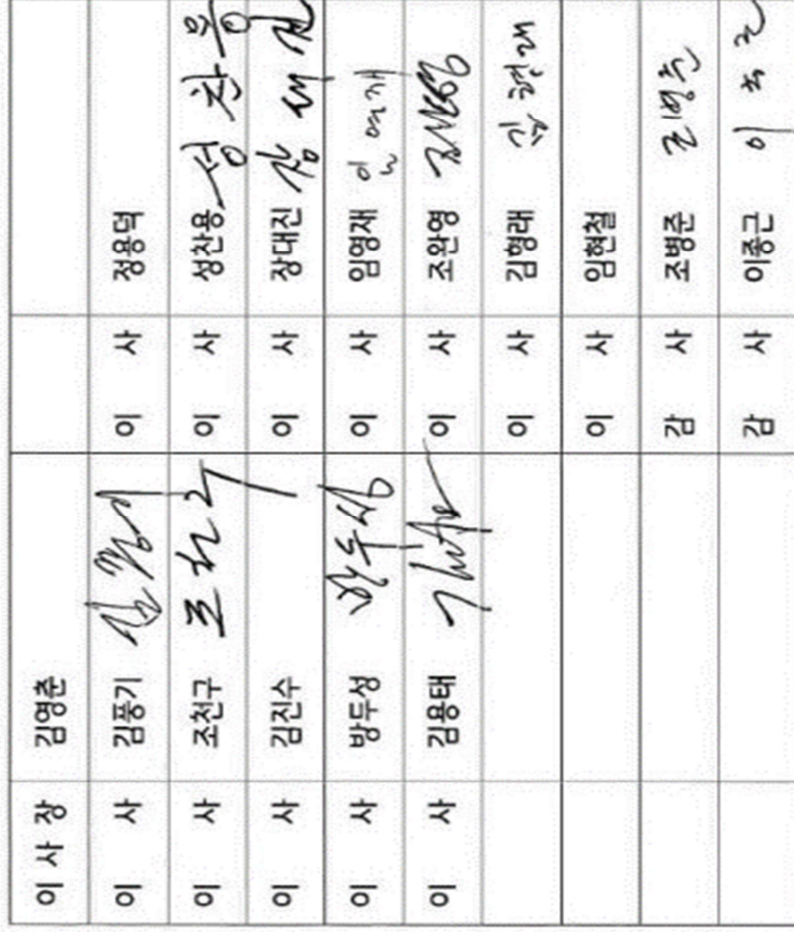 이 사 장 김영춘
이 사 김풍기 이 사 정용덕
이 사 조천구 조천구 이 사 성찬용 성찬용
이 사 김진수 이 사 장대진 장대진
이 사 방두성 방두성 이 사 임영재
이 사 김용태 이 사 조완영
이 사 김형래 김형래
이 사 임현철
감 사 조병준 조병준
감 사 이종근